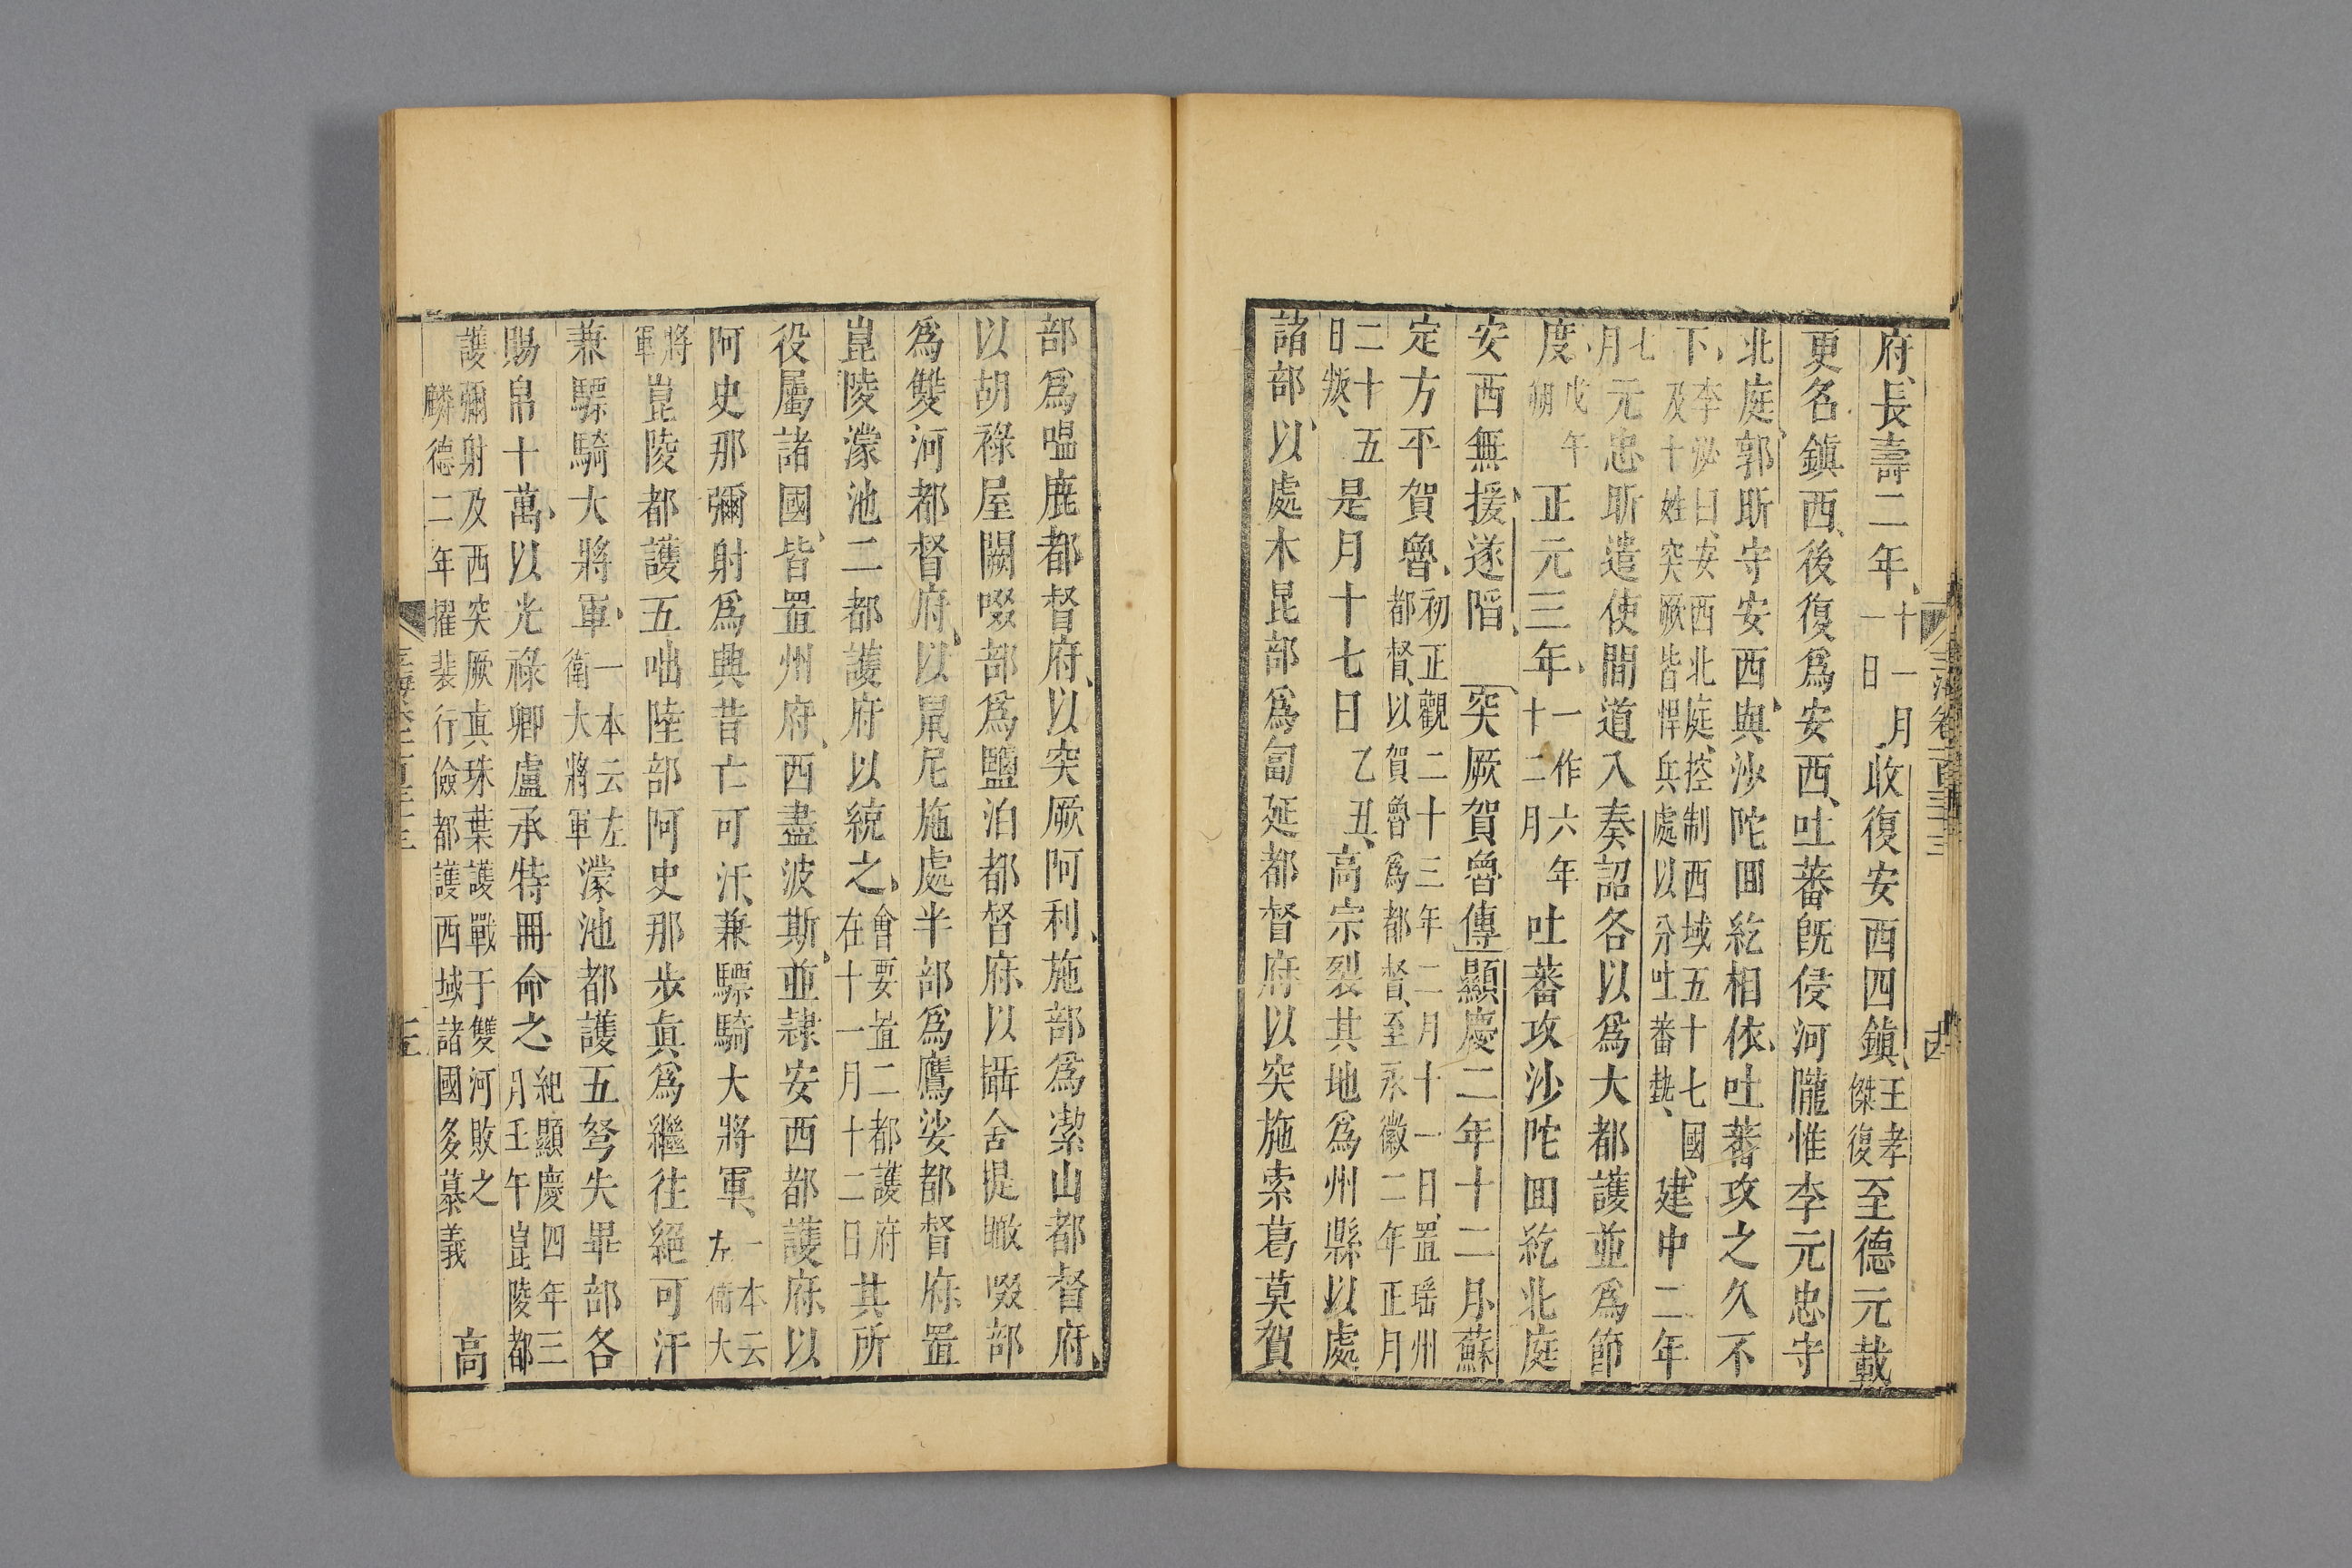 府、長壽二年、十一月一日收復安西四鎮、王孝傑復至德元載
更名鎮西、後復爲安西、吐蕃既侵河隴惟李元忠守
北庭、郭昕守安西、與沙陀回紇相依、吐蕃攻之久不
下、李泌曰、安西北庭、控制西域五十七國、及十姓突厥皆悍兵處以分吐蕃埶、建中二年
七月元忠昕遣使間道入奏詔各以爲大都護並爲節
度、戊午朔正元三年、一作六年十二月吐蕃攻沙陀回紇北庭
安西無援、遂陷、突厥賀魯傳顯慶二年十二月、蘇
定方平賀魯、初正觀二十三年二月十一日、置瑤州都督、以賀魯爲都督、至永徽二年正月
二十五日叛、是月十七日乙丑、高宗裂其地爲州縣以處
諸部、以處木昆部爲匐延都督府以突施索葛莫賀
部爲嗢鹿都督府、以突厥阿利、施部爲潔山都督府、
以胡祿屋闕啜部爲鹽泊都督府以攝舍提暾啜部
爲雙河都督府、以鼠尼施處半部爲鷹娑都督府置
崑陵濛池二都護府以統之、會要置二都護府在十一月十二日其所
役屬諸國、皆置州府、西盡波斯、並隷安西都護府、以
阿史那彌射爲興昔亡可汗、兼驃騎大將軍、一本云左衛大
將軍崑陵都護五咄陸部阿史那步真爲繼往絕可汗
兼驃騎大將軍、一本云左衛大將軍濛池都護五弩失畢部各
賜帛十萬、以光祿卿盧承特冊命之、紀顯慶四年三月壬午崑陵都
護彌射及西突厥真珠葉護戰于雙河敗之麟德二年擢裴行儉都護西域諸國多慕義高